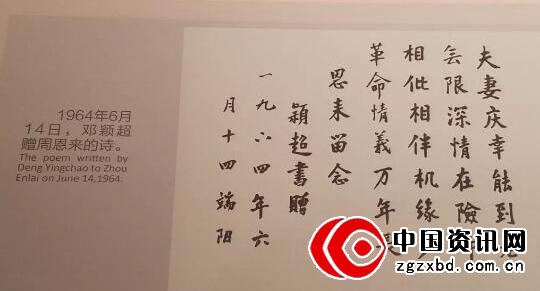 1964年6月
14日，邓颖超
赠周恩来的诗。
The poem written by
Deng Yingchao to Zhou
Enlai on June 14,1964.
夫妻庆幸能到
無限深情在險
相依相伴机缘
革命情義万年長
恩来留念
颖超書贈
一九六四年六
月十四端阳
中国资讯网
zgzxbd.com.cn